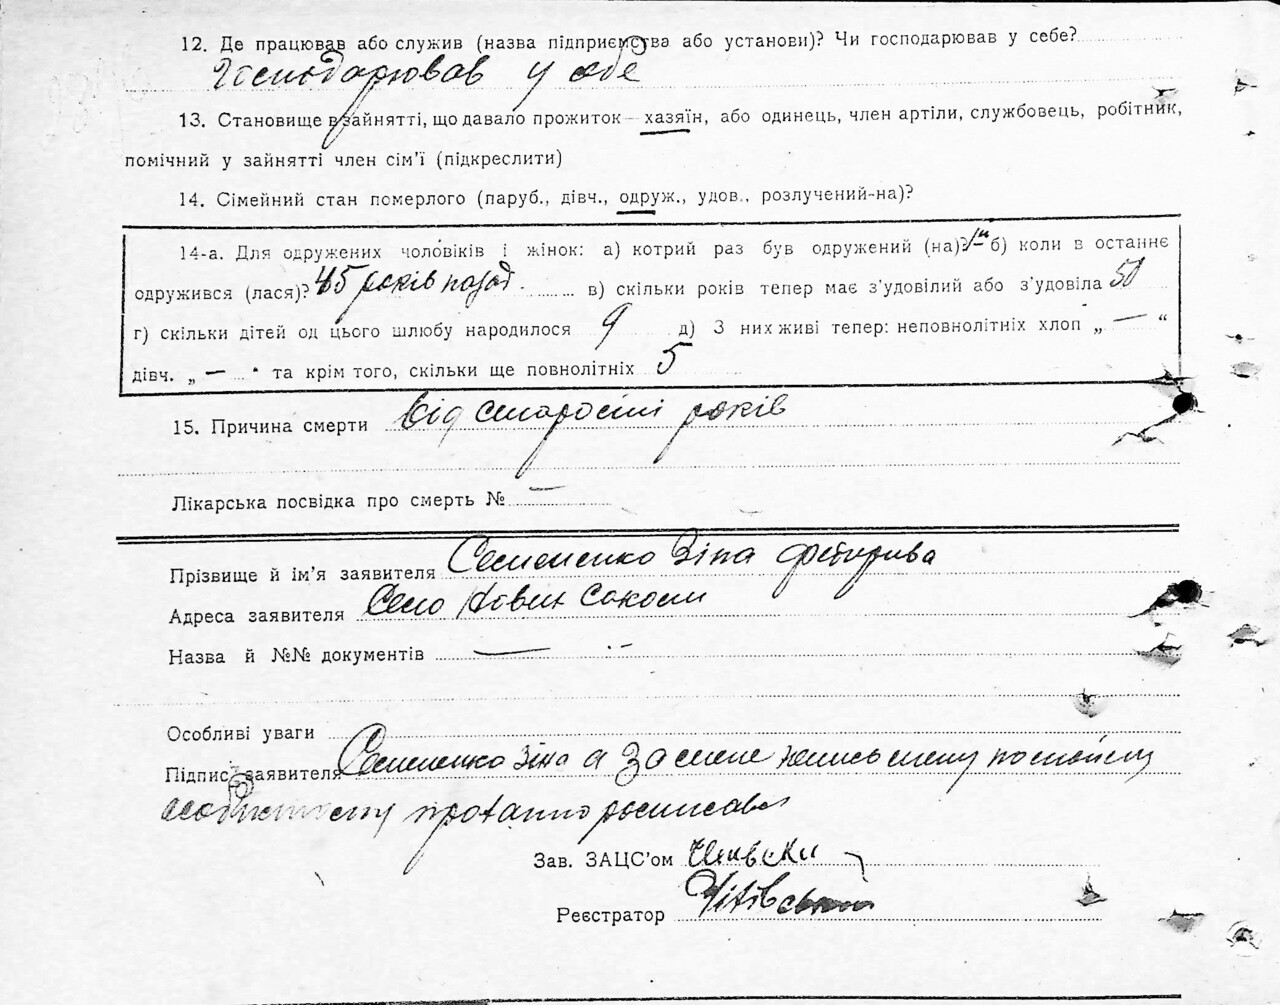 12. Де працював або служив (назва підприємства або установи)? Чи господарював у себе?
Господарював у себе
13. Становище в зайнятті, що давало прожиток — хазяїн, або одинець, член артілі, службовець, робітник,
помічний у зайнятті член сім'ї (підкреслити)
14. Сімейний стан померлого (паруб., дівч., одруж., удов., розлучений-на)?
14-а. Для одружених чоловіків і жінок: а) котрий раз був одружений (на)? б) коли в останнє
одружився (лася)? 45 років назад. в) скільки років тепер має з'удовілий або з'удовіла 50
г) скільки дітей од цього шлюбу народилося 9 д) З них живі тепер: неповнолітніх хлоп „ — “
дівч. „ — “ та крім того, скільки ще повнолітніх 5
15. Причина смерти від старости років
Лікарська посвідка про смерть № —
Прізвище й ім'я заявителя Семененко Зіна
Адреса заявителя Село
Назва й №№ документів —
Особливі уваги
Підпис заявителя Семененко Зіна а за
Зав. ЗАЦС'ом
Реєстратор